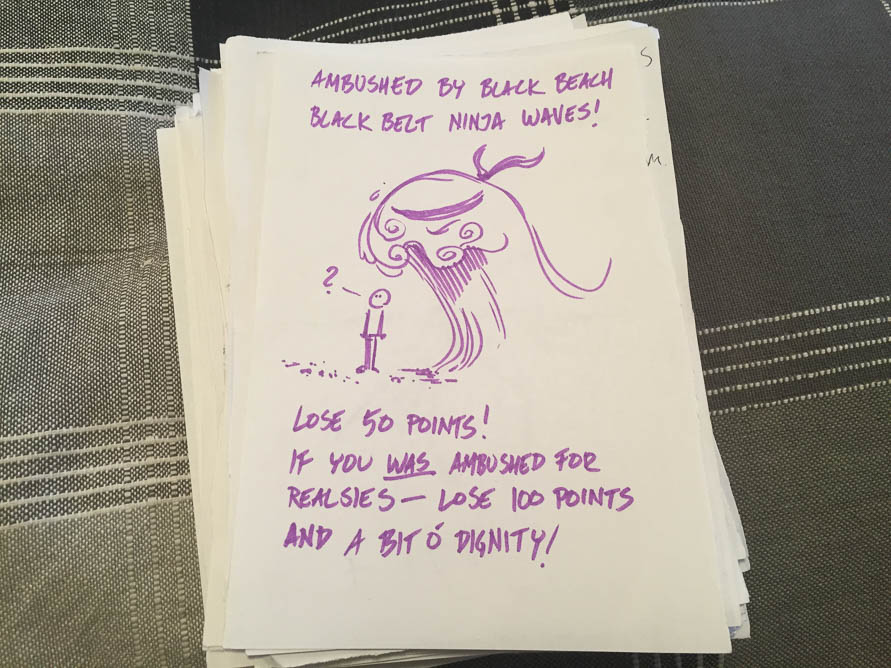 AMBUSHED BY BLACK BEACH
BLACK BELT NINJA WAVES!
?
LOSE 50 POINTS!
IF YOU WAS AMBUSHED FOR
REALSIES — LOSE 100 POINTS
AND A BIT Ó DIGNITY!
S
M